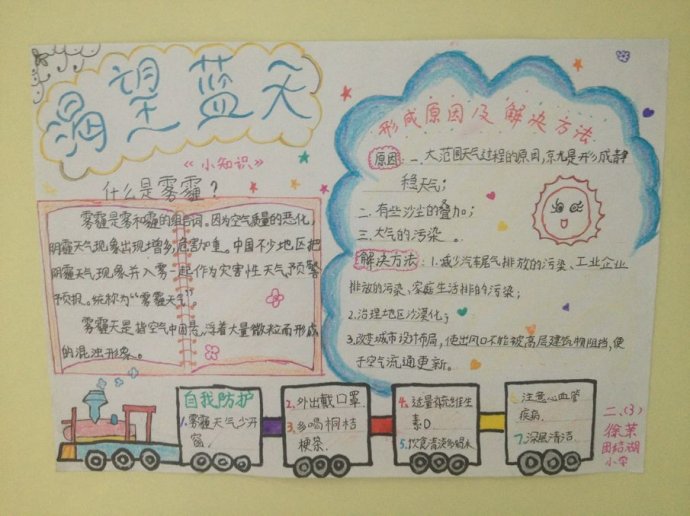 渴望蓝天
《小知识》
什么是雾霾？
雾霾是雾和霾的组合词。因为空气质量的恶化，
阴霾天气现象出现增多，危害加重。中国不少地区把
阴霾天气现象并入雾一起作为灾害性天气预警
预报。统称为“雾霾天气”。
雾霾天是指空气中因悬浮着大量微粒而形成
的混浊形象。
形成原因及解决方法
原因：一、大范围天气过程的原因，就是形成静
稳天气；
二、有些沙尘的叠加；
三、大气的污染。
解决方法：1.减少汽车尾气排放的污染、工业企业
排放的污染、家庭生活排的污染；
2.治理地区沙漠化；
3.改变城市设计布局，使出风口不能被高层建筑物阻挡，便
于空气流通更新。
自我防护
1.雾霾天气少开
窗
2.外出戴口罩
3.多喝桐桔
梗茶
4.适量补充维生
素D
5.饮食清淡多喝水
注意心血管
疾病
7.深层清洁
二、（3）
徐
团结湖
小学